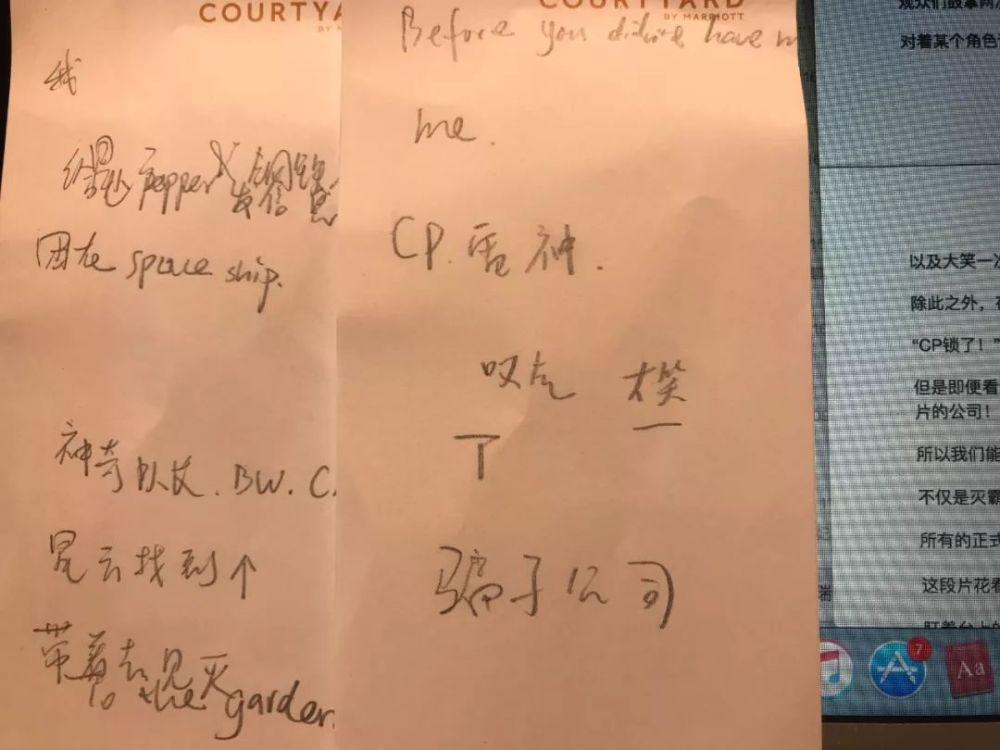 COURTYA
BY M
我
给 pepper 发信息
困在 space ship.
神奇队长. BW. C.
星云找到个
带着去见灭
to the garden.
COURTYARD
BY MARRIOTT
Before you have m
me.
CP. 雷神.
叹气 大笑
T 一
骗子公司
观众们鼓掌两
对着某个角色
以及大笑一次
除此之外，
“CP锁了！”
但是即便看
片的公司！
所以我们能
不仅是灭霸
所有的正式
这段片花看
盯着台上的
7
Aa